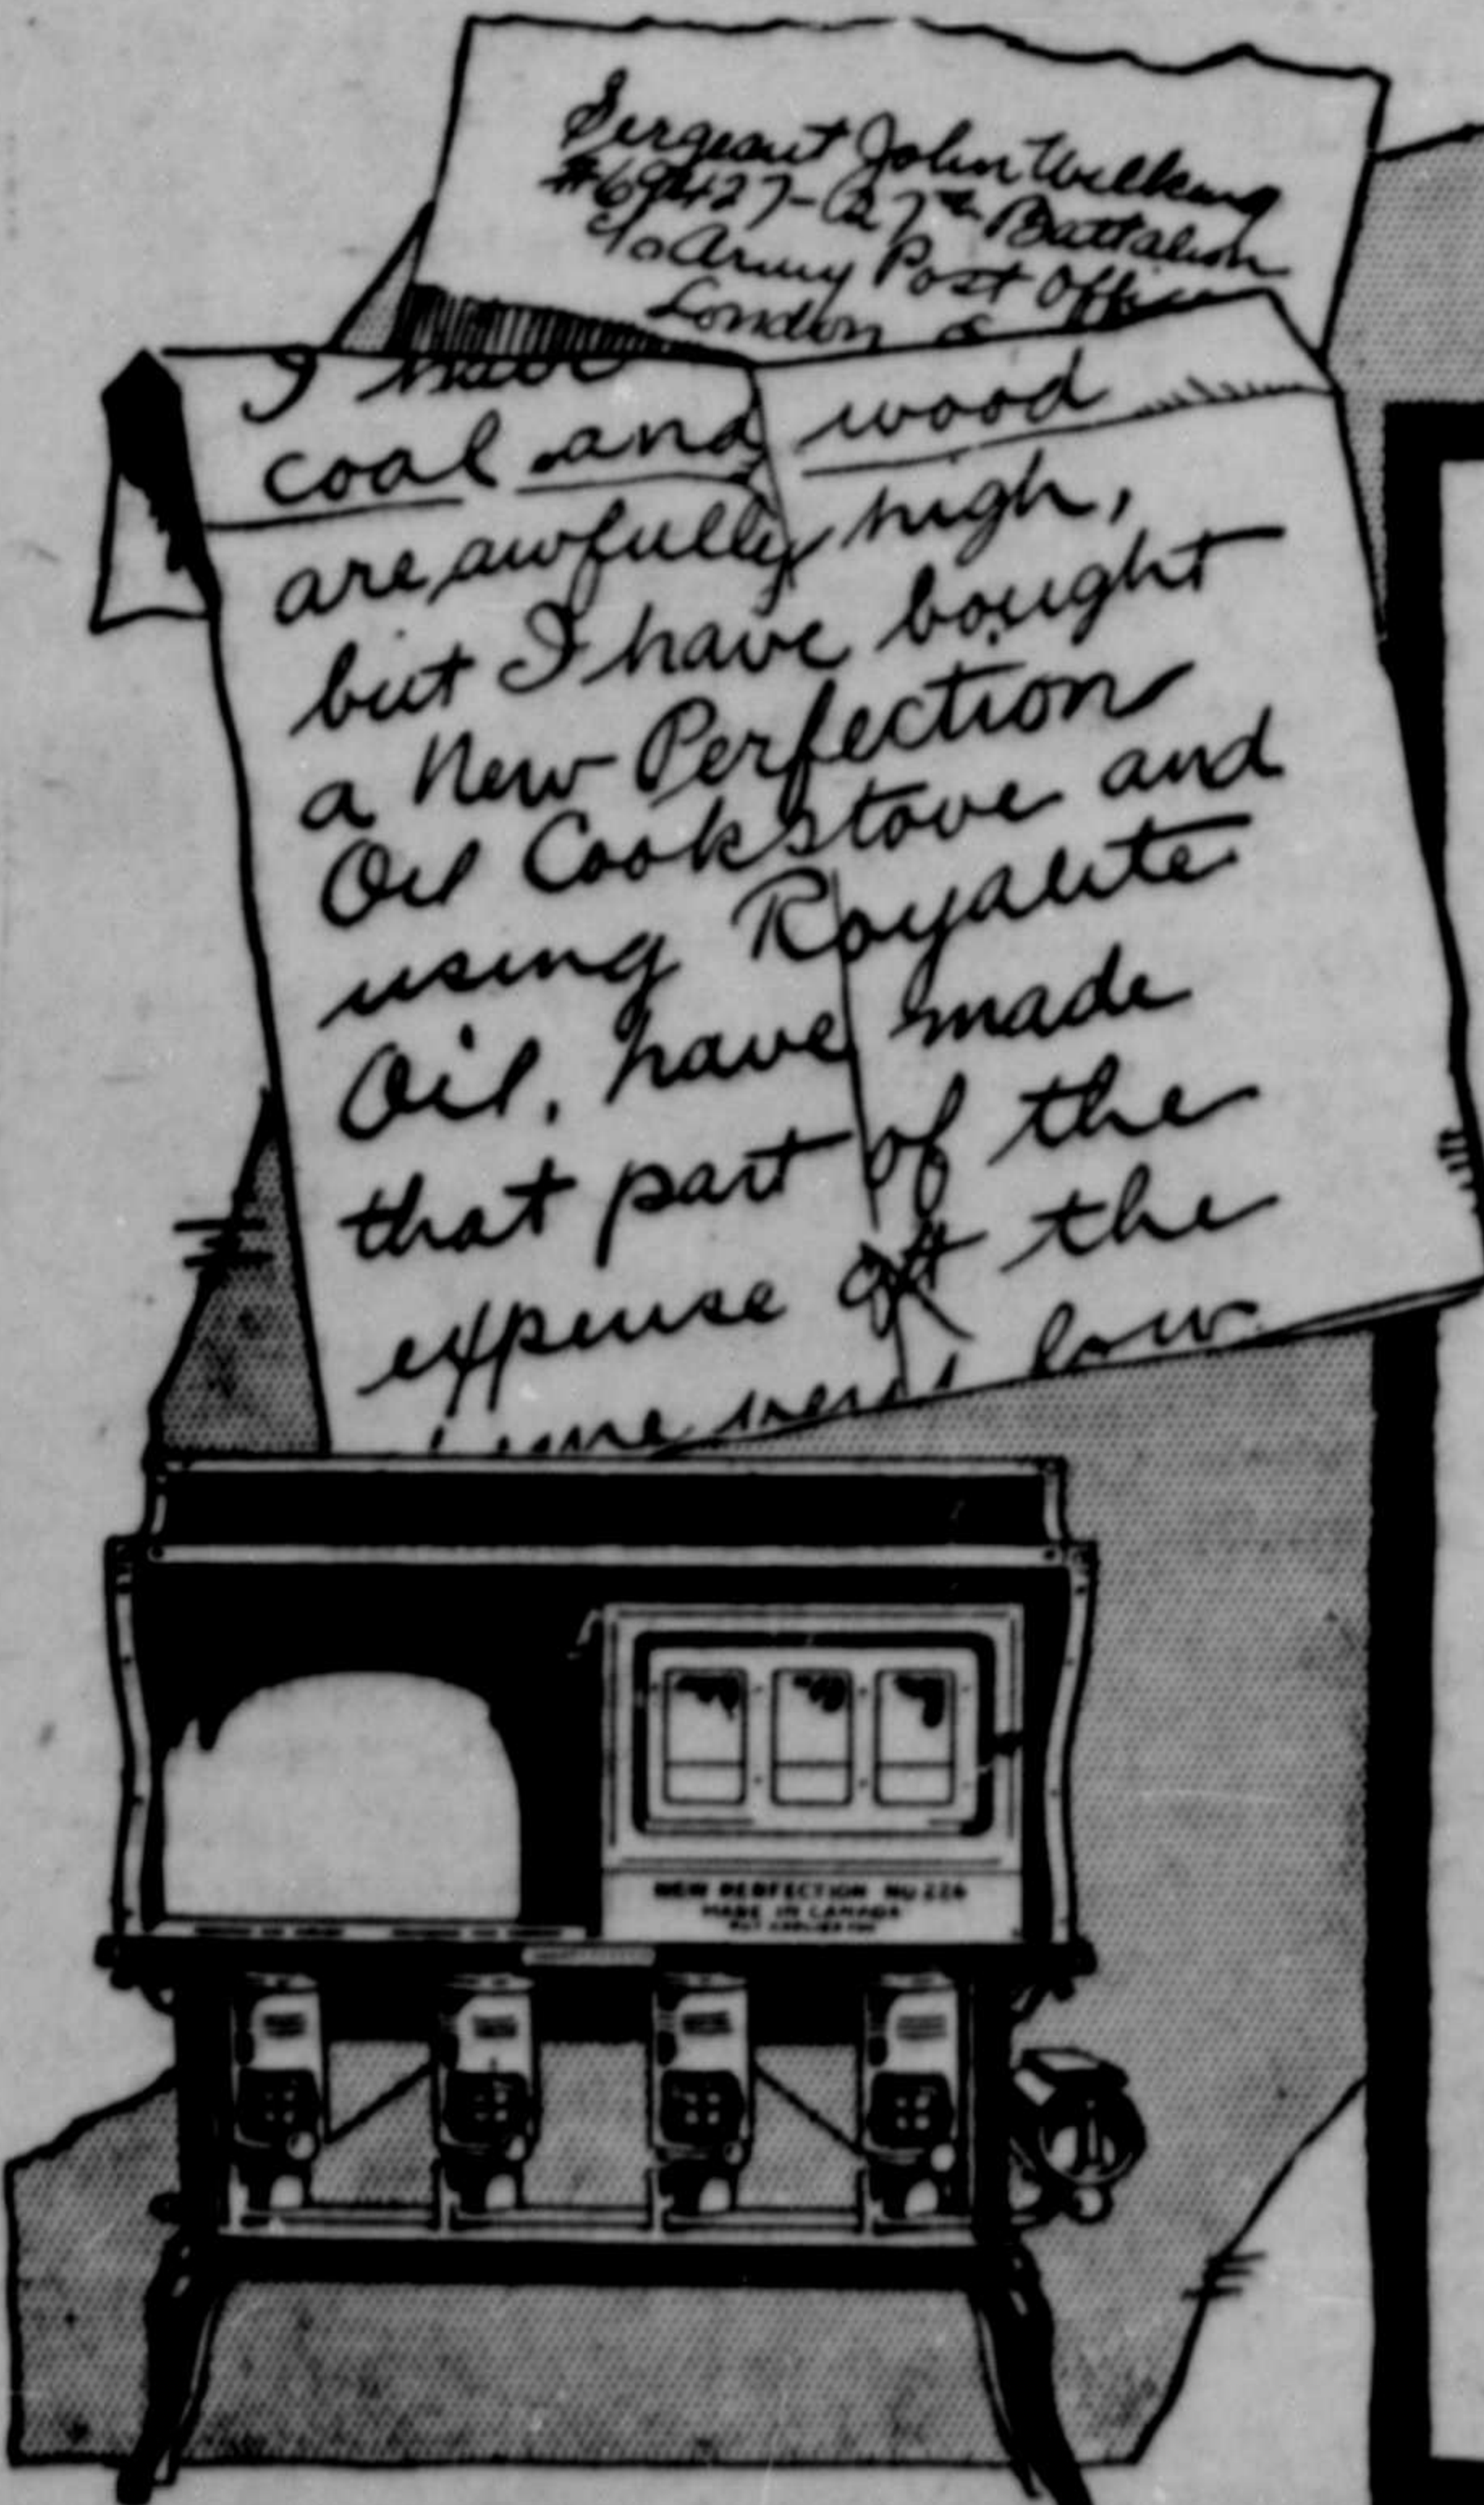 Sergeant John Wilkins
27th Battalion
c/o Army Post Office
London
I have
coal and wood
are awfully high,
but I have bought
a New Perfection
Oil Cookstove and
using Royalite
Oil, have made
that part of the
expense of the
low
NEW PERFECTION NO 226
MADE IN CANADA